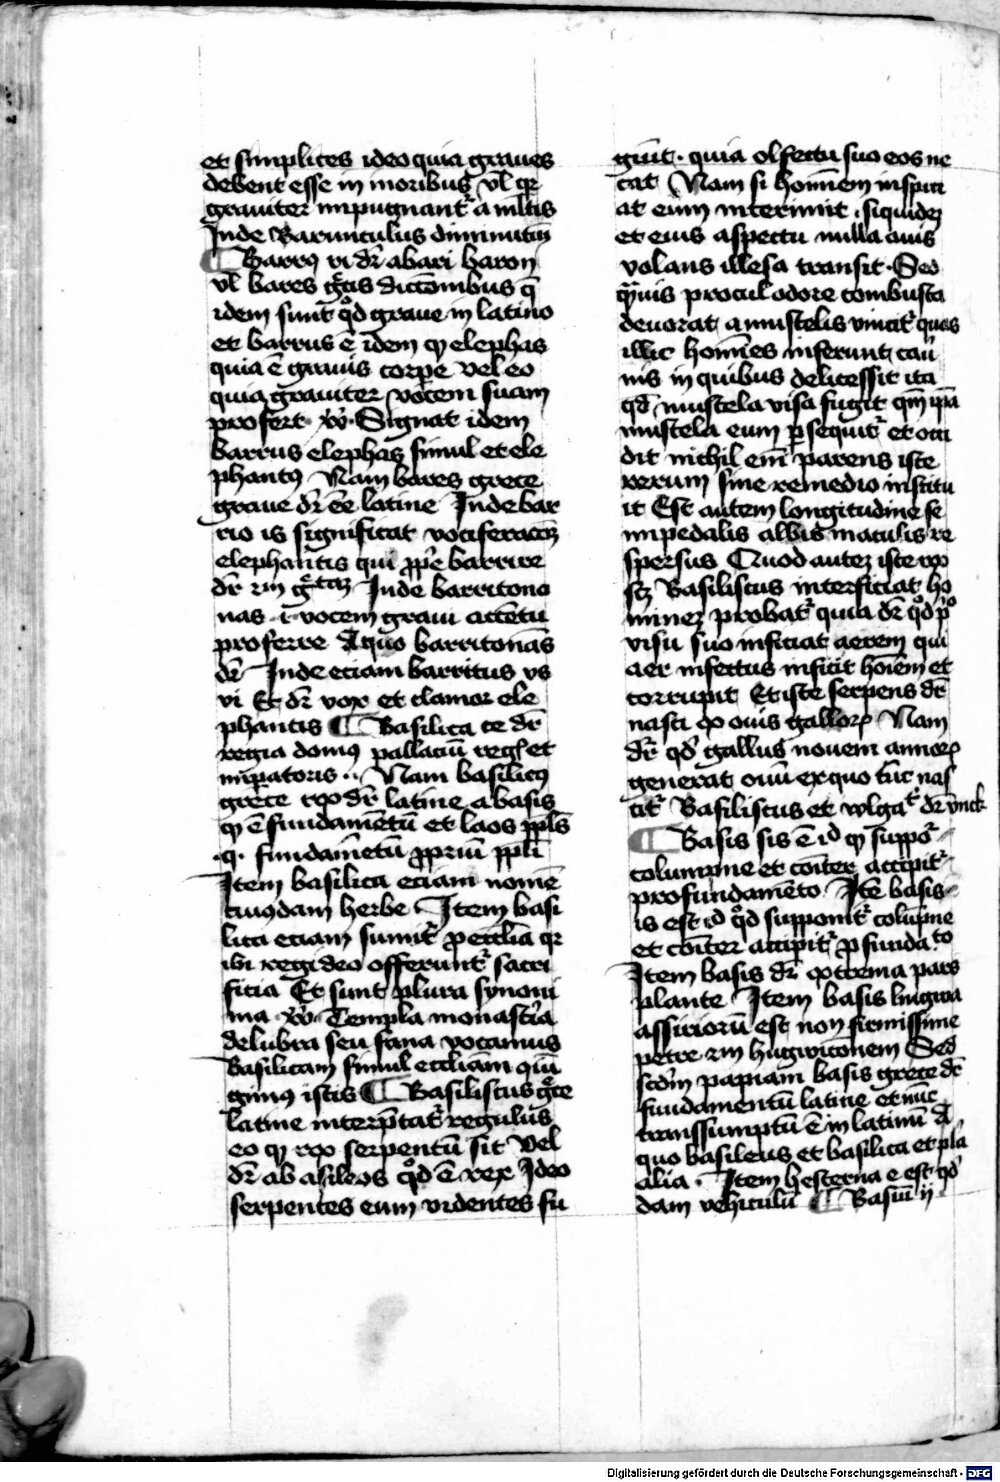 et simplices ideo quia graues
debent esse in moribus vl̄ qr
grauiter impugnant᷑ a mltis
Inde Barunculus diminutiū
¶ Barrꝰ ri dr̄ a bari baron
vl̄ bares grecis dictōnibus q̄
idem sunt qd̄ graue in latino
et barrus ē idem qͥ elephas
quia ē grauis corpe vel eo
quia grauiter vocem suam
profert Signat idem
barrus elephas simul et ele
phantꝰ Nam bares grece
graue dr̄ ēe latine Inde bar
rio is significat vociferacōeꝫ
elephantis qui ꝓpe barrire
dr̄ Inde barritono
nas .i. vocem graui accētu
proferre A quo barritonās
dr̄ Inde eciam barritus vs
vi Et dr̄ vox et clamor ele
phantis ¶ Basilica ce dr̄
regia domꝰ pallaciū regꝭ et
impatoris Nam basilicꝰ
grece rex dr̄ latine a basis
qͥ ē fundamētū et laos ppls̄
.q. fundamētū ꝓpriū ppli
Item basilica eciam nomē
cuiꝰdam herbe Item basi
lica eciam sumit᷑ p eccliā qr
ibi regi deo offerunt᷑ sacri
ficia Et sunt plura synoni
ma Templa monastia
delubra seu fana vocamus
Basilicam simul eccliam
gimꝰ istis ¶ Basiliscus gͤce
latine interptat᷑ regulus
eo qͥ rex serpentū sit Vel
dr̄ ab asileos qd̄ ē rex Ideo
serpentes eum videntes fu
giūt. quia olfectu suo eos ne
cat Nam si hominem inspici
at eum interimit. siquideꝫ
et eius aspectu nulla auis
volans illesa transit. Sed
qͣuis procul odore combusta
deuorat a mustelis vincit᷑ quas
illic homines inferunt cauͬ
nis in quibus delitessit ita
qd̄ mustela visa fugit qm̄ ipā
mustela eum psequit᷑ et occi
dit nichil em̄ parens iste
rerum sine remedio institu
it Est autem longitudine se
mipedalis albis maculis re
spersus Quod auteꝫ iste rex
scꝫ Basiliscus interficiat ho
mineꝫ probat᷑ quia dr̄ qd̄ pͦ
visu suo inficiat aerem qui
aer infectus inficit hoīem et
corrupit Et iste serpens dr̄
nasci ex ouis galloꝝ Nam
dr̄ qd̄ gallus nouem annoꝝ
generat ouū ex quo tūc nas
cit᷑ Basiliscus et wlgat᷑ dr̄ vnck
¶ Basis sis ē id qͥ suppoͬ
columpne et cōiter accipit᷑
pro fundamēto Itē basis
is est id qd̄ supponit᷑ colūpne
et cōiter accipit᷑ p fundaͭͦ
Item basis dr̄ extrema pars
plante Item basis lingwa
assirioru est non firmissime
petre hugwicōnem Sed
scdm̄ papiam basis grece dr̄
fundamentū latine et nūc
transsumptū ē in latinū A
quo basileus et basilica et plā
alia. Item hesterna e est qd̄
dam vehiculū ¶ Basiū ij